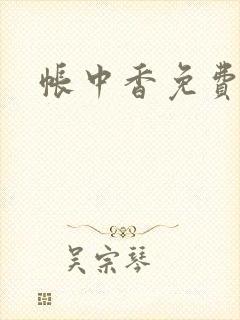 帐中香免费
吴宗琴